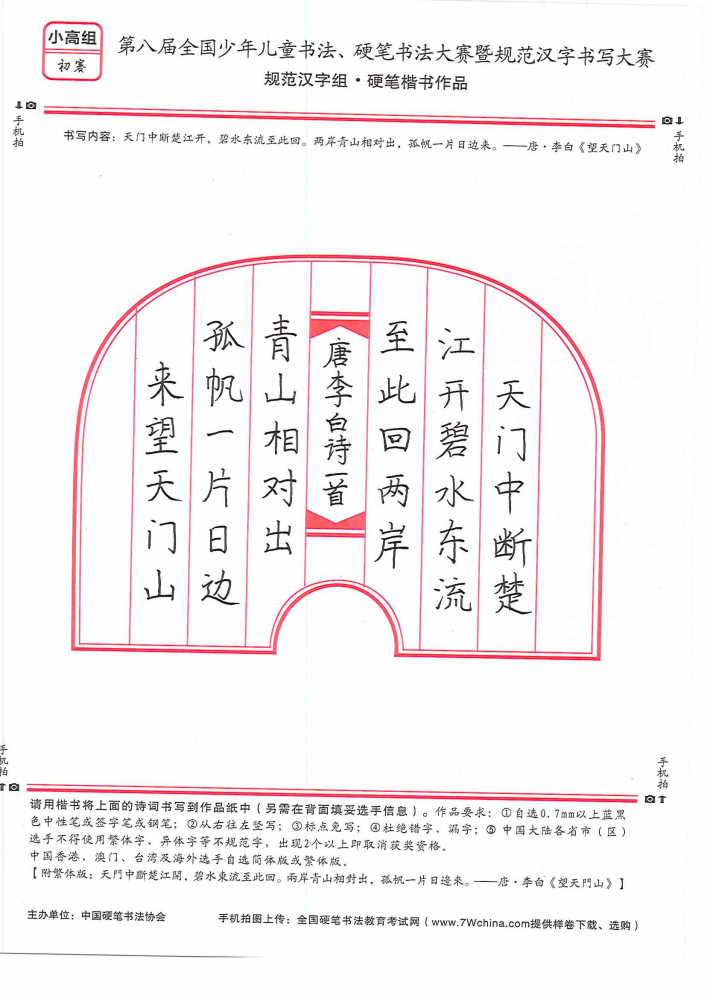 小高组
初赛
第八届全国少年儿童书法、硬笔书法大赛暨规范汉字书写大赛
规范汉字组·硬笔楷书作品
手机拍
手机拍
书写内容：天门中断楚江开，碧水东流至此回。两岸青山相对出，孤帆一片日边来。——唐·李白《望天门山》
天门中断楚
江开碧水东流
至此回两岸
唐李白诗一首
青山相对出
孤帆一片日边
来望天门山
手机拍
手机拍
请用楷书将上面的诗词书写到作品纸中（另需在背面填妥选手信息）。作品要求：①自选0.7mm以上蓝黑
色中性笔或签字笔或钢笔；②从右往左竖写；③标点免写；④杜绝错字、漏字；⑤中国大陆各省市（区）
选手不得使用繁体字、异体字等不规范字，出现2个以上即取消获奖资格。
中国香港、澳门、台湾及海外选手自选简体版或繁体版。
【附繁体版：天門中斷楚江開，碧水東流至此回。兩岸青山相對出，孤帆一片日邊來。——唐·李白《望天門山》】
主办单位：中国硬笔书法协会
手机拍图上传：全国硬笔书法教育考试网（www.7Wchina.com提供样卷下载、选购）